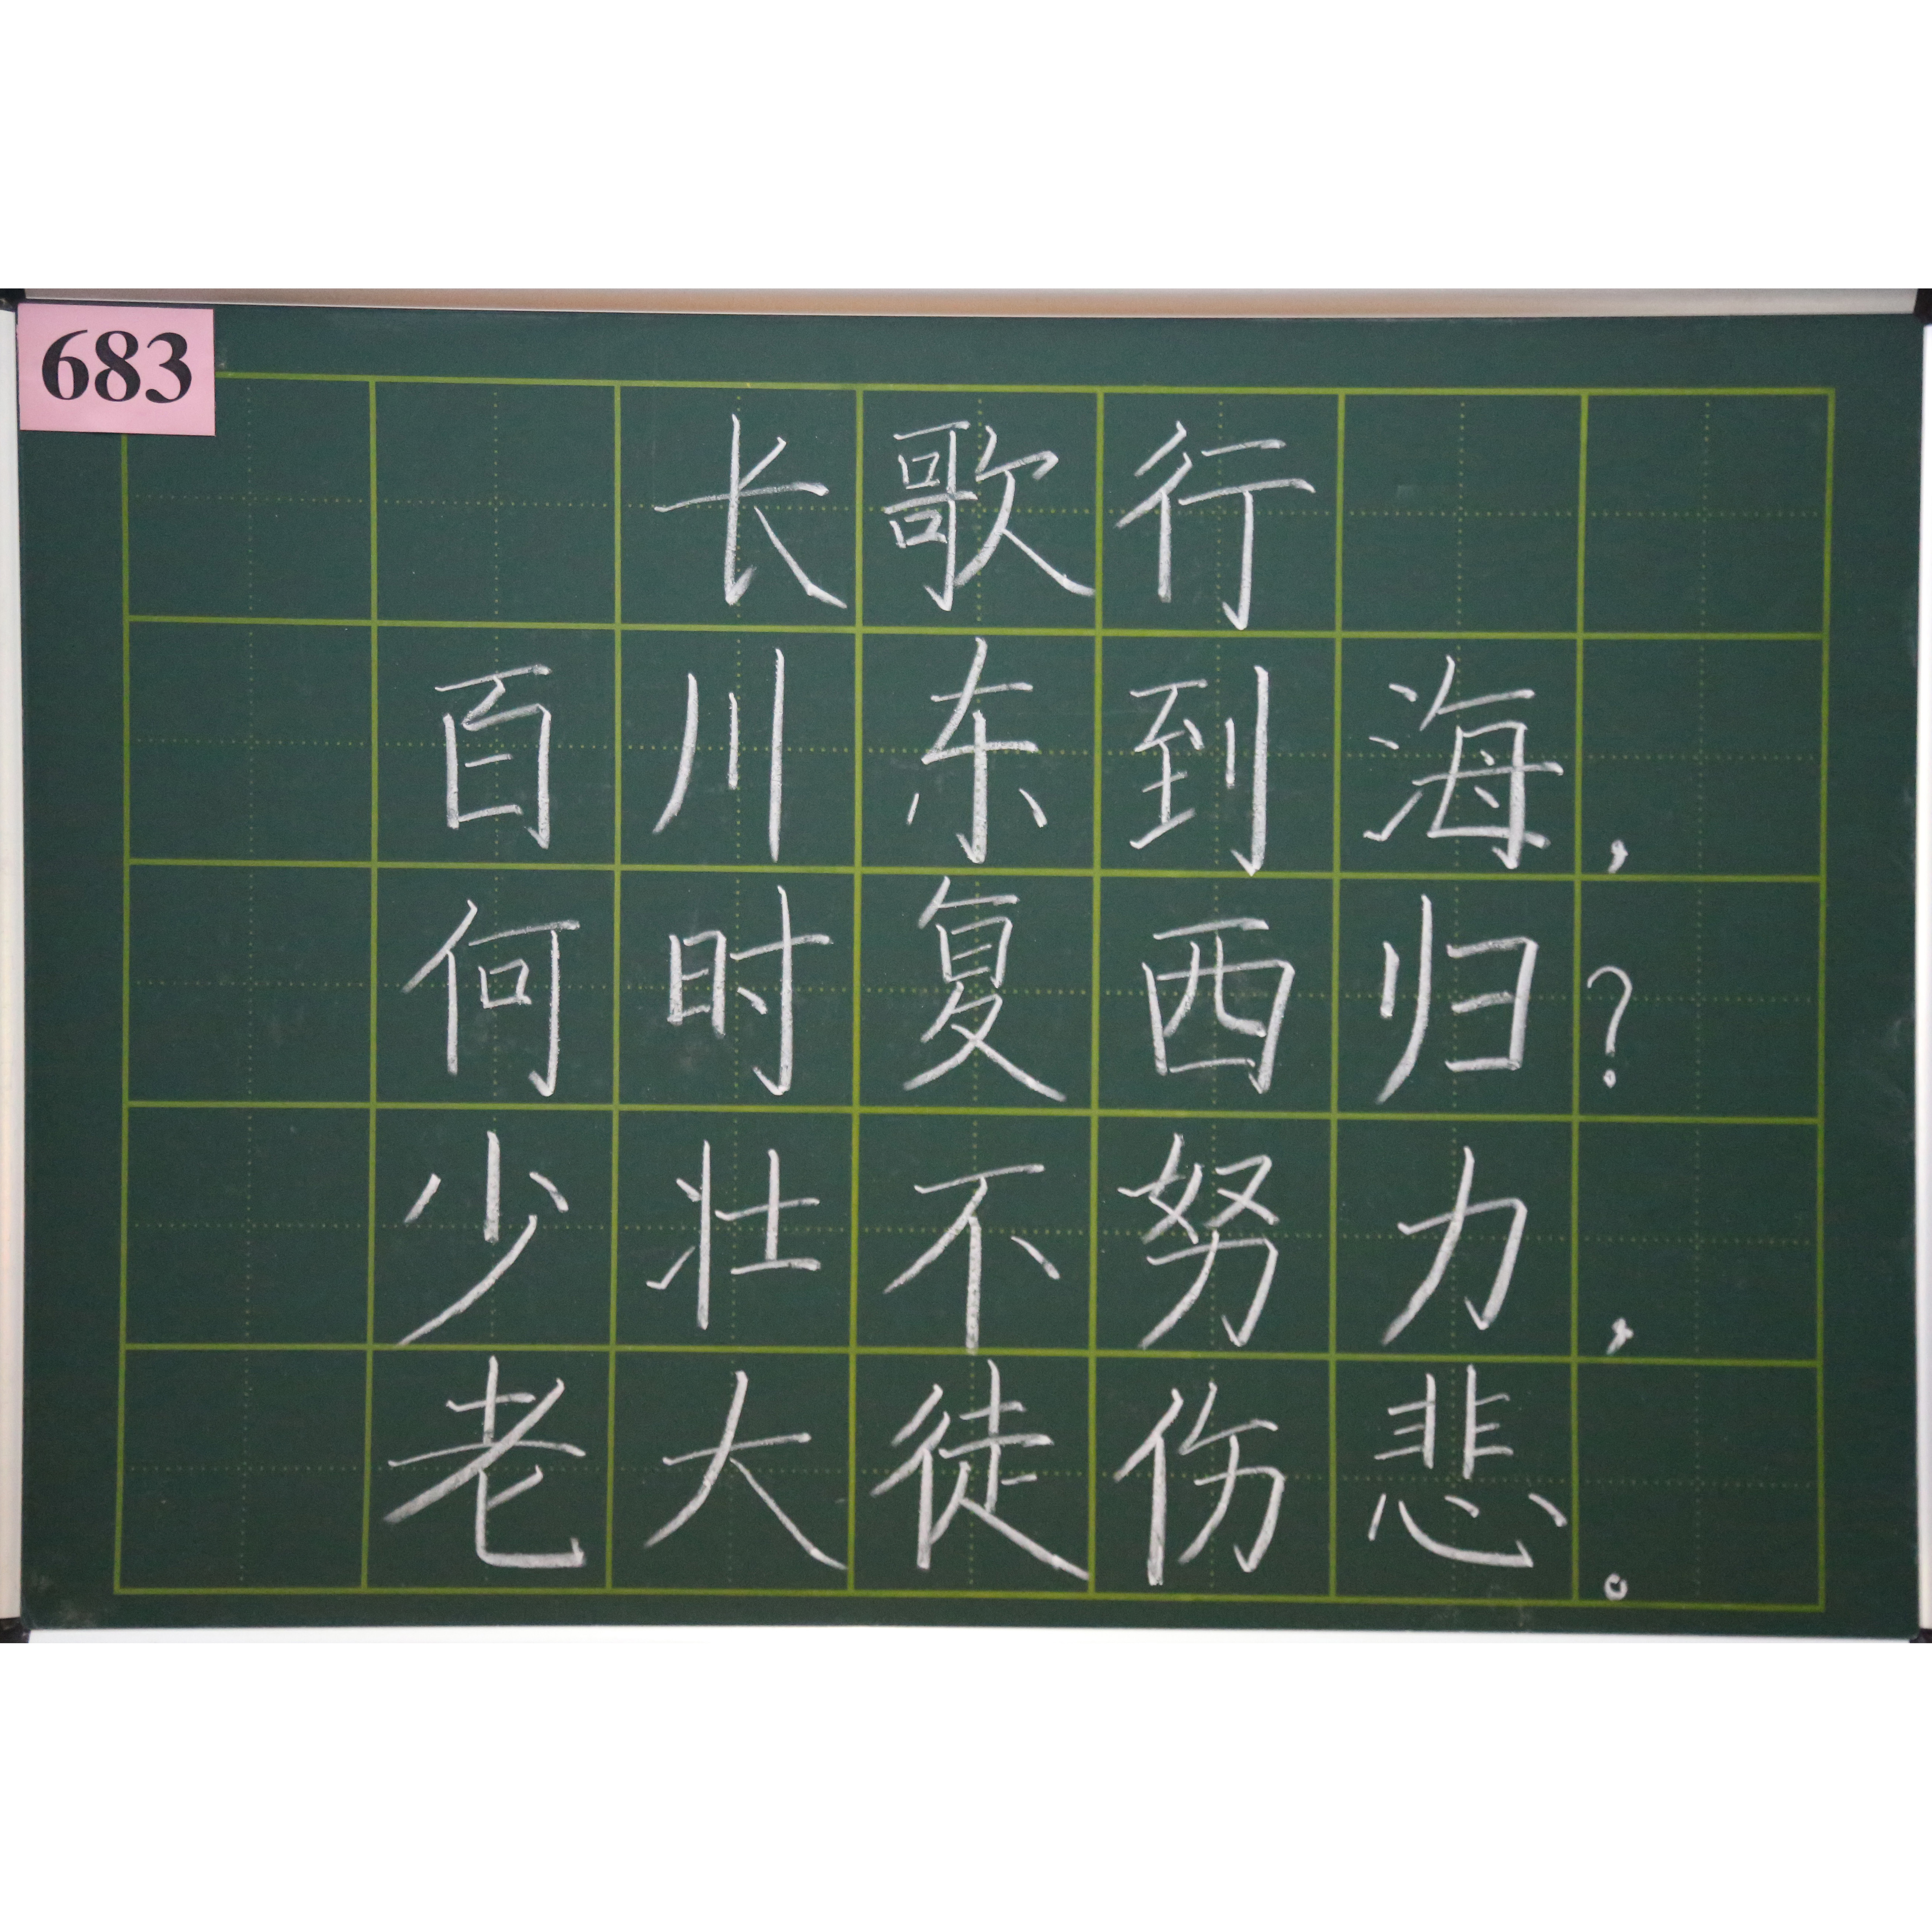 683
长歌行
百川东到海，
何时复西归？
少壮不努力，
老大徒伤悲。